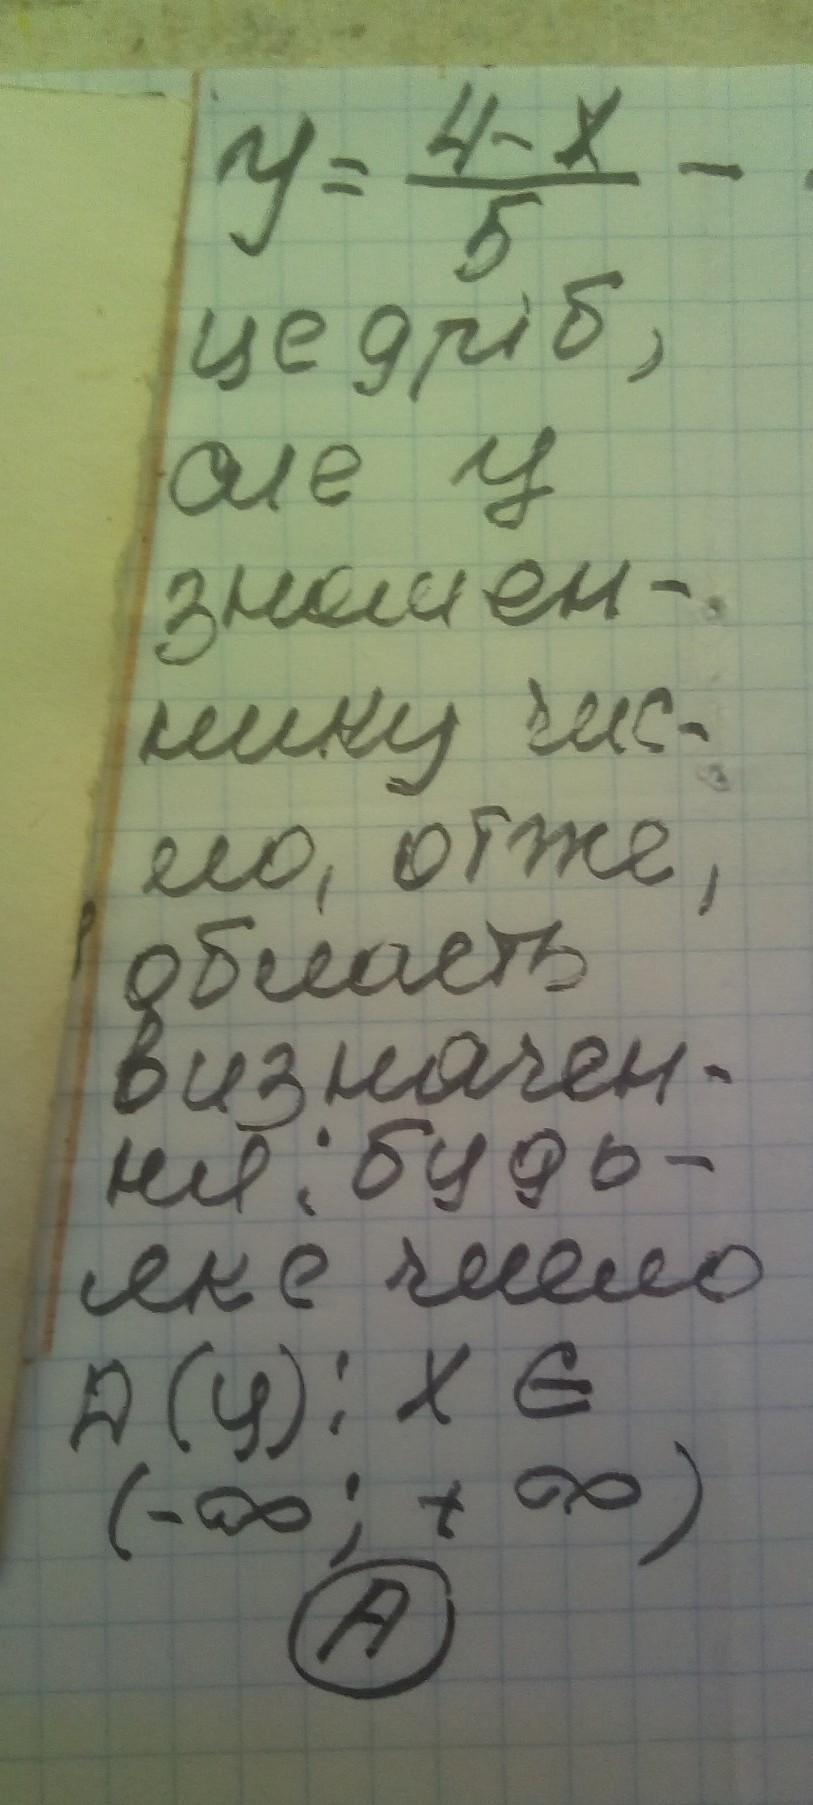 y = (4-x)/5 -
це дріб,
але у
знамен-
нику чис-
ло, отже,
область
визначен-
ня: будь-
яке число
D(y): x ∈
(-∞; +∞)
А